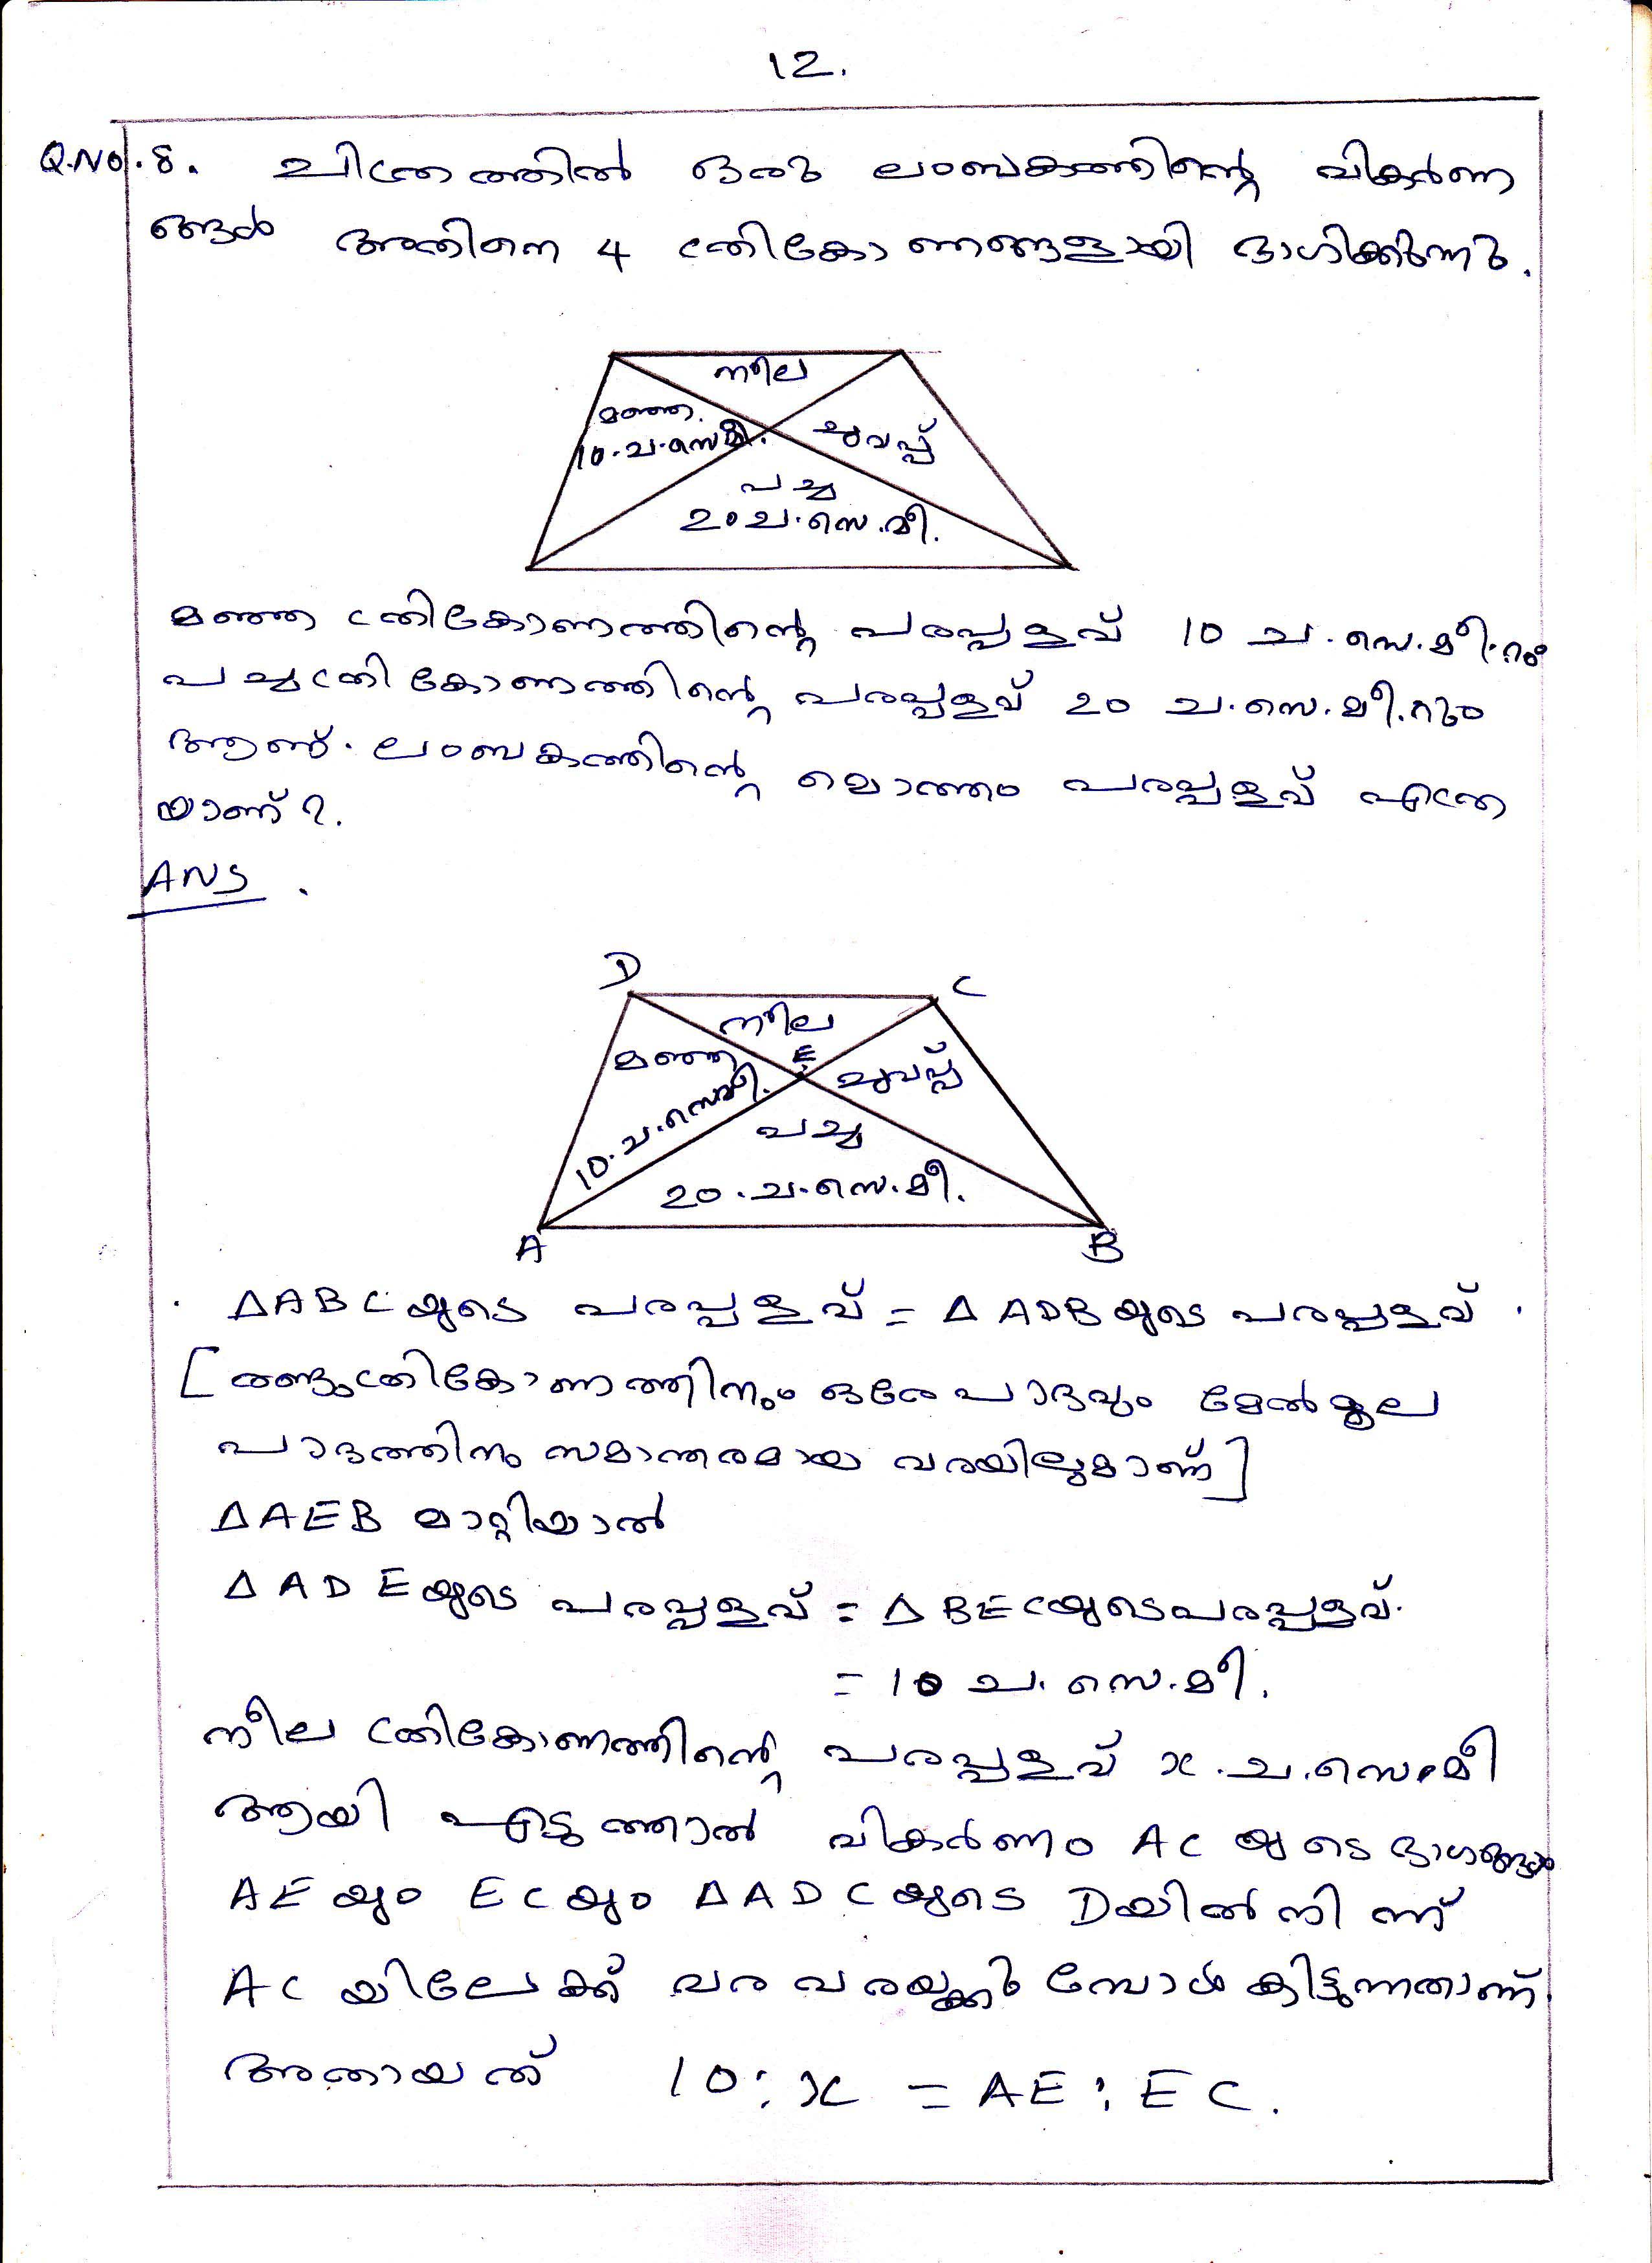 12.
Q.No.8. ചിത്രത്തിൽ ഒരു ലംബകത്തിന്റെ വികർണ
ങ്ങൾ അതിനെ 4 ത്രികോണങ്ങളായി ഭാഗിക്കുന്നു.
നീല
മഞ്ഞ.
10.ച.സെമീ.
ചുവപ്പ്
പച്ച
20ച.സെ.മീ.
മഞ്ഞ ത്രികോണത്തിന്റെ പരപ്പളവ് 10 ച.സെ.മീ.റും
പച്ചത്രികോണത്തിന്റെ പരപ്പളവ് 20 ച.സെ.മീ.റും
ആണ്. ലംബകത്തിന്റെ മൊത്തം പരപ്പളവ് എത്ര
യാണ്?.
ANS.
D
C
നീല
മഞ്ഞ
E
ചുവപ്പ്
10.ച.സെമീ.
പച്ച
20.ച.സെ.മീ.
A
B
ΔABCയുടെ പരപ്പളവ് = ΔADBയുടെ പരപ്പളവ്.
[രണ്ടുത്രികോണത്തിനും ഒരേ പാദവും മേൽമൂല
പാദത്തിനു സമാന്തരമായ വരയിലുമാണ്]
ΔAEB മാറ്റിയാൽ
ΔADEയുടെ പരപ്പളവ് = ΔBECയുടെപരപ്പളവ്.
= 10 ച.സെ.മീ.
നീല ത്രികോണത്തിന്റെ പരപ്പളവ് x.ച.സെ.മീ
ആയി എടുത്താൽ വികർണം AC യുടെ ഭാഗങ്ങൾ
AEയും ECയും ΔADCയുടെ Dയിൽ നിന്ന്
ACയിലേക്ക് വര വരയ്ക്കുമ്പോൾ കിട്ടുന്നതാണ്.
അതായത് 10:x = AE:EC.